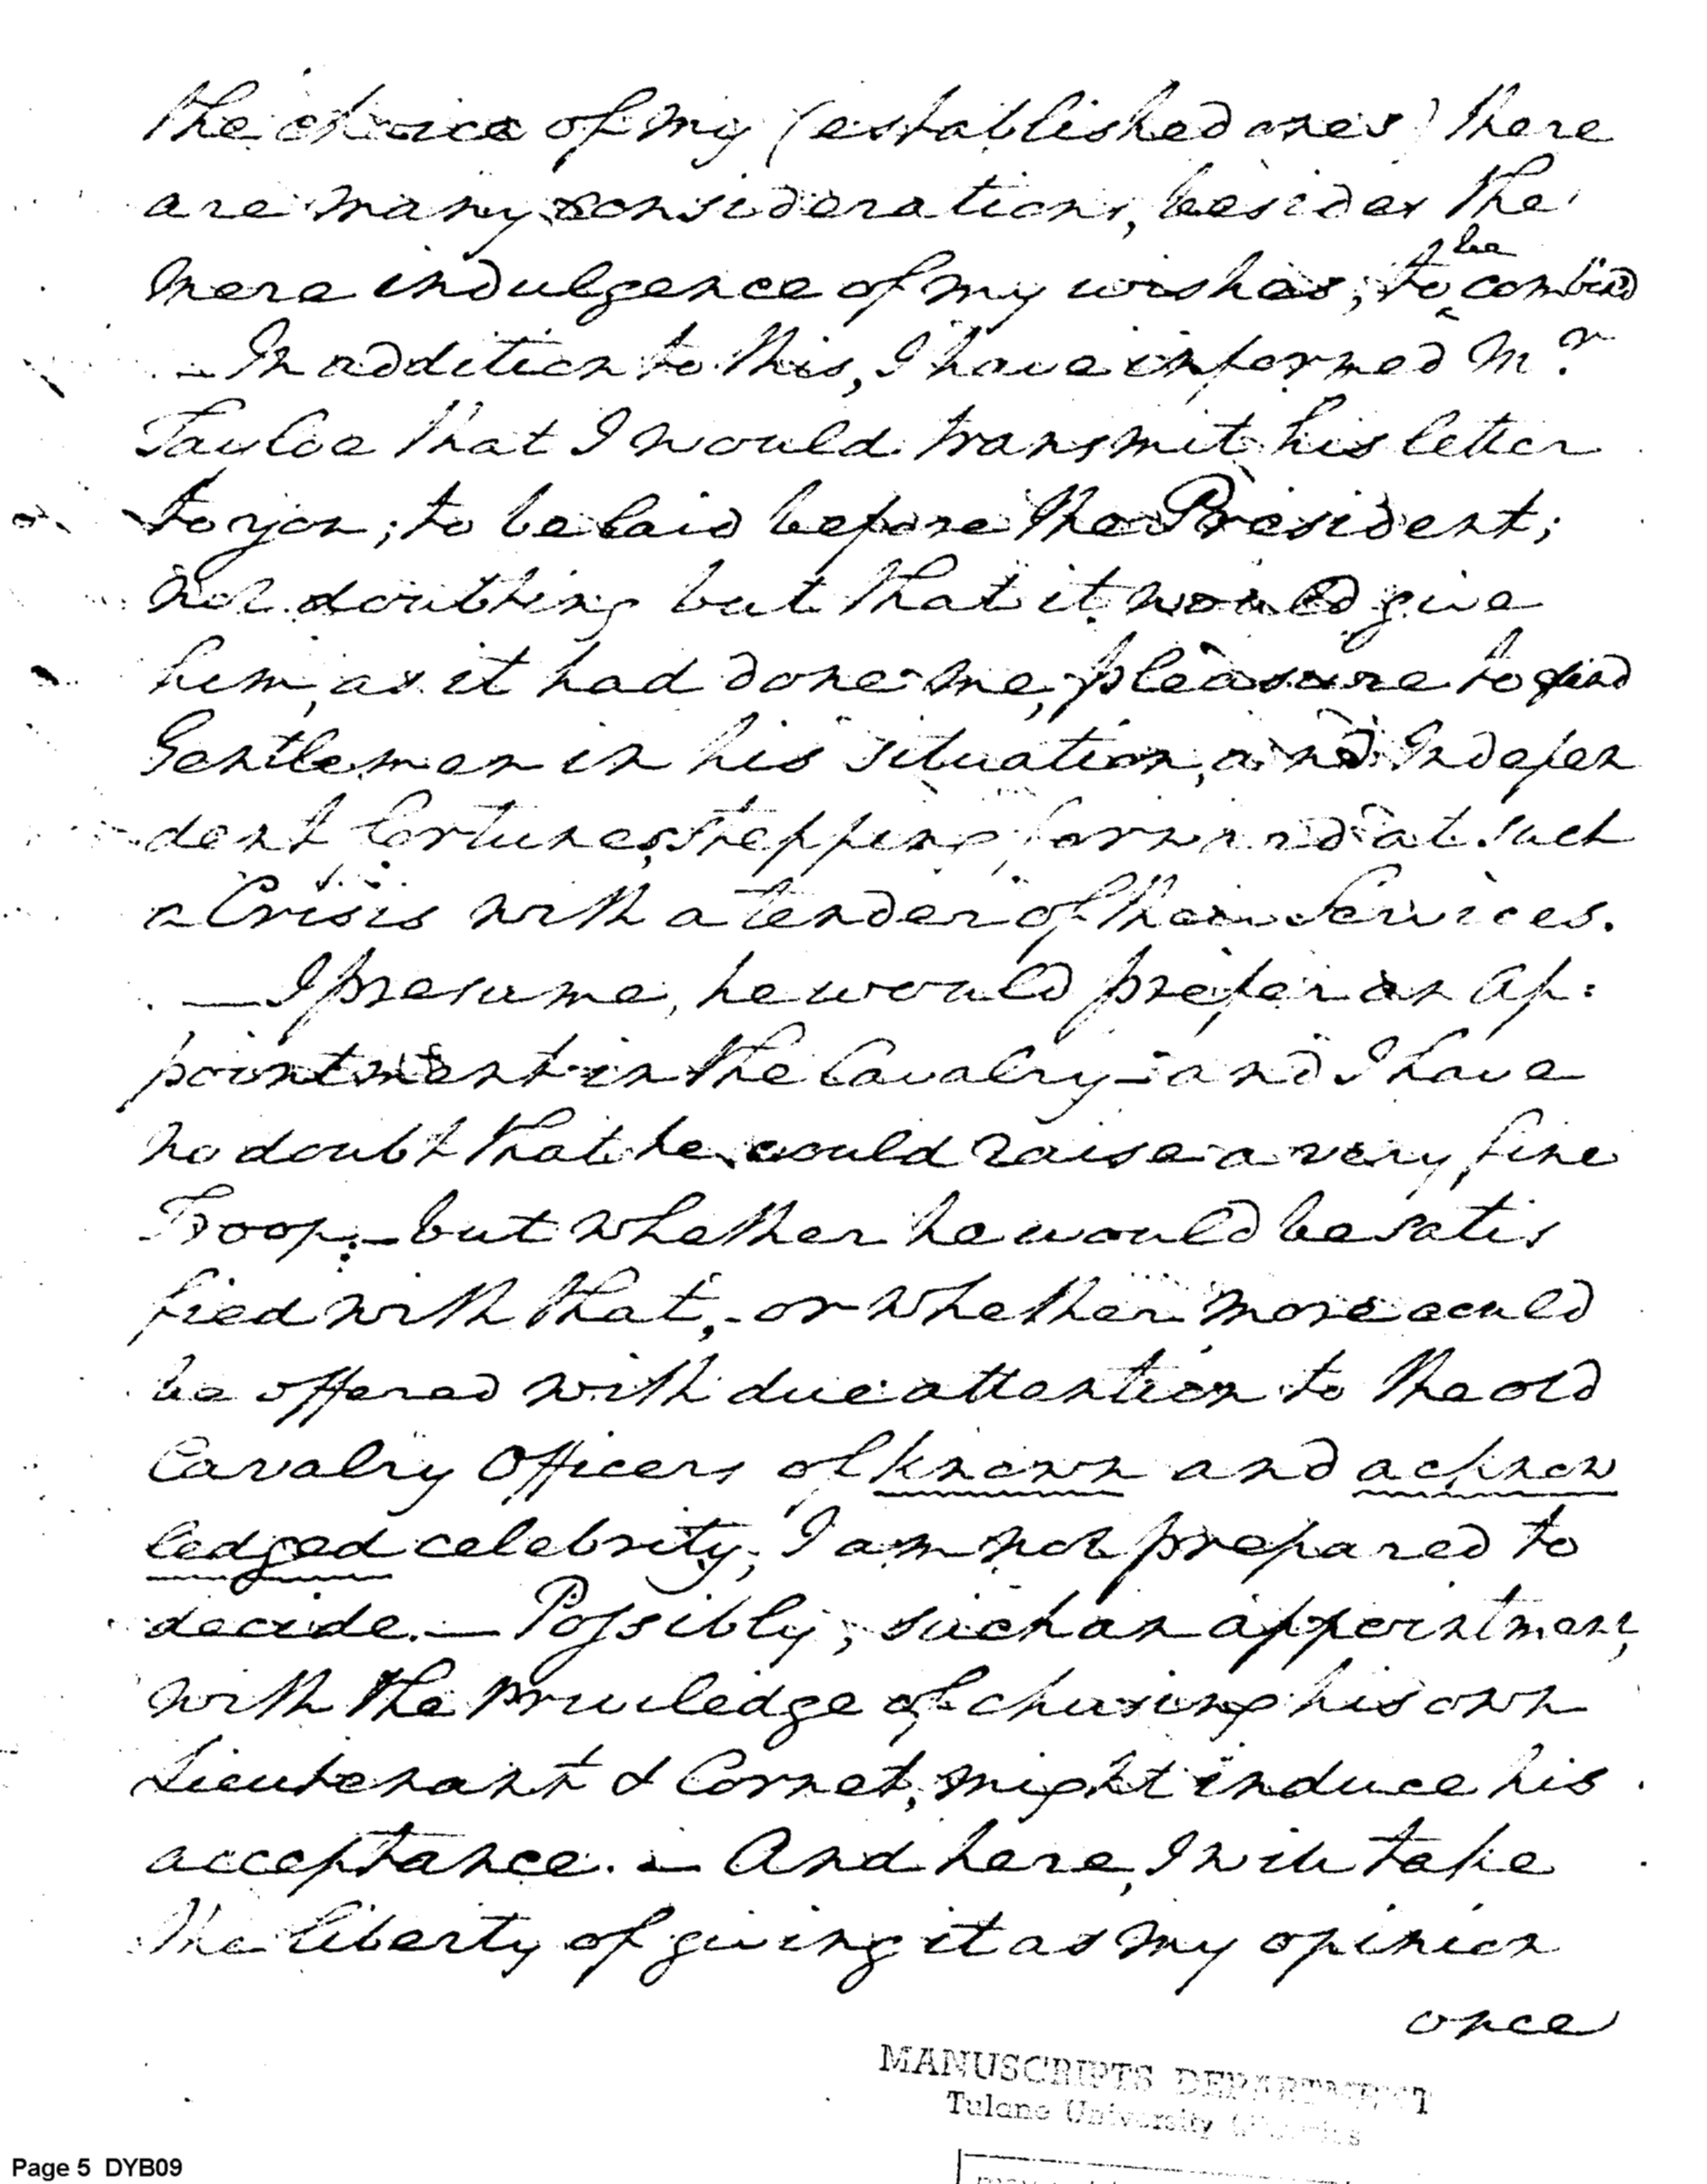 the choice of my (established ones) there
are many considerations, besides the
mere indulgence of my wishes, to be combined
– In addition to this, I have informed Mr.
Tayloe that I would transmit his letter
to you; to be laid before the President;
not doubting but that it would give
him, as it had done me, pleasure to find
Gentlemen in his situation, and Indepen
dent fortunes, stepping forward at such
a Crisis with a tender of their Services.
— I presume, he would prefer an ap:
pointment in the Cavalry – and I have
no doubt that he would raise a very fine
Troop;– but whether he would be satis
fied with that,– or whether more could
be offered with due attention to the old
Cavalry Officers of known and acknow
ledged celebrity, I am not prepared to
decide.— Possibly, such an appointment,
with the priviledge of chusing his own
Lieutenant & Cornet, might induce his
acceptance. – And here, I will take
the liberty of giving it as my opinion
once
MANUSCRIPTS DEPARTMENT
Tulane University Libraries
Page 5 DYB09